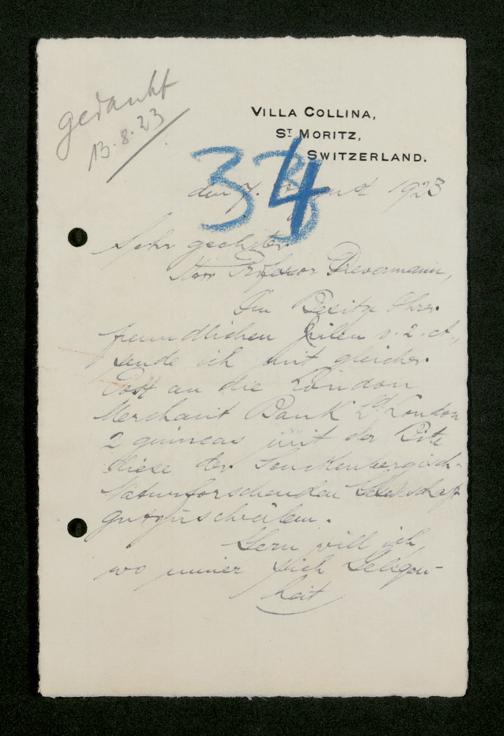 gedankt
13.8.23
VILLA COLLINA,
ST MORITZ,
SWITZERLAND.
34
den 7. August 1923
Sehr geehrter
Herr Professor Drevermann,
Im Besitze Ihrer
freundlichen Zeilen v. 2. d.,
sende ich mit gleicher
Post an die London
Merchant Bank Ld London
2 guineas mit der Bitte
diese der Senckenbergisch-
Naturforschenden Gesellschaft
gutzuschreiben.
Gern will ich
wo immer sich Gelegen-
heit